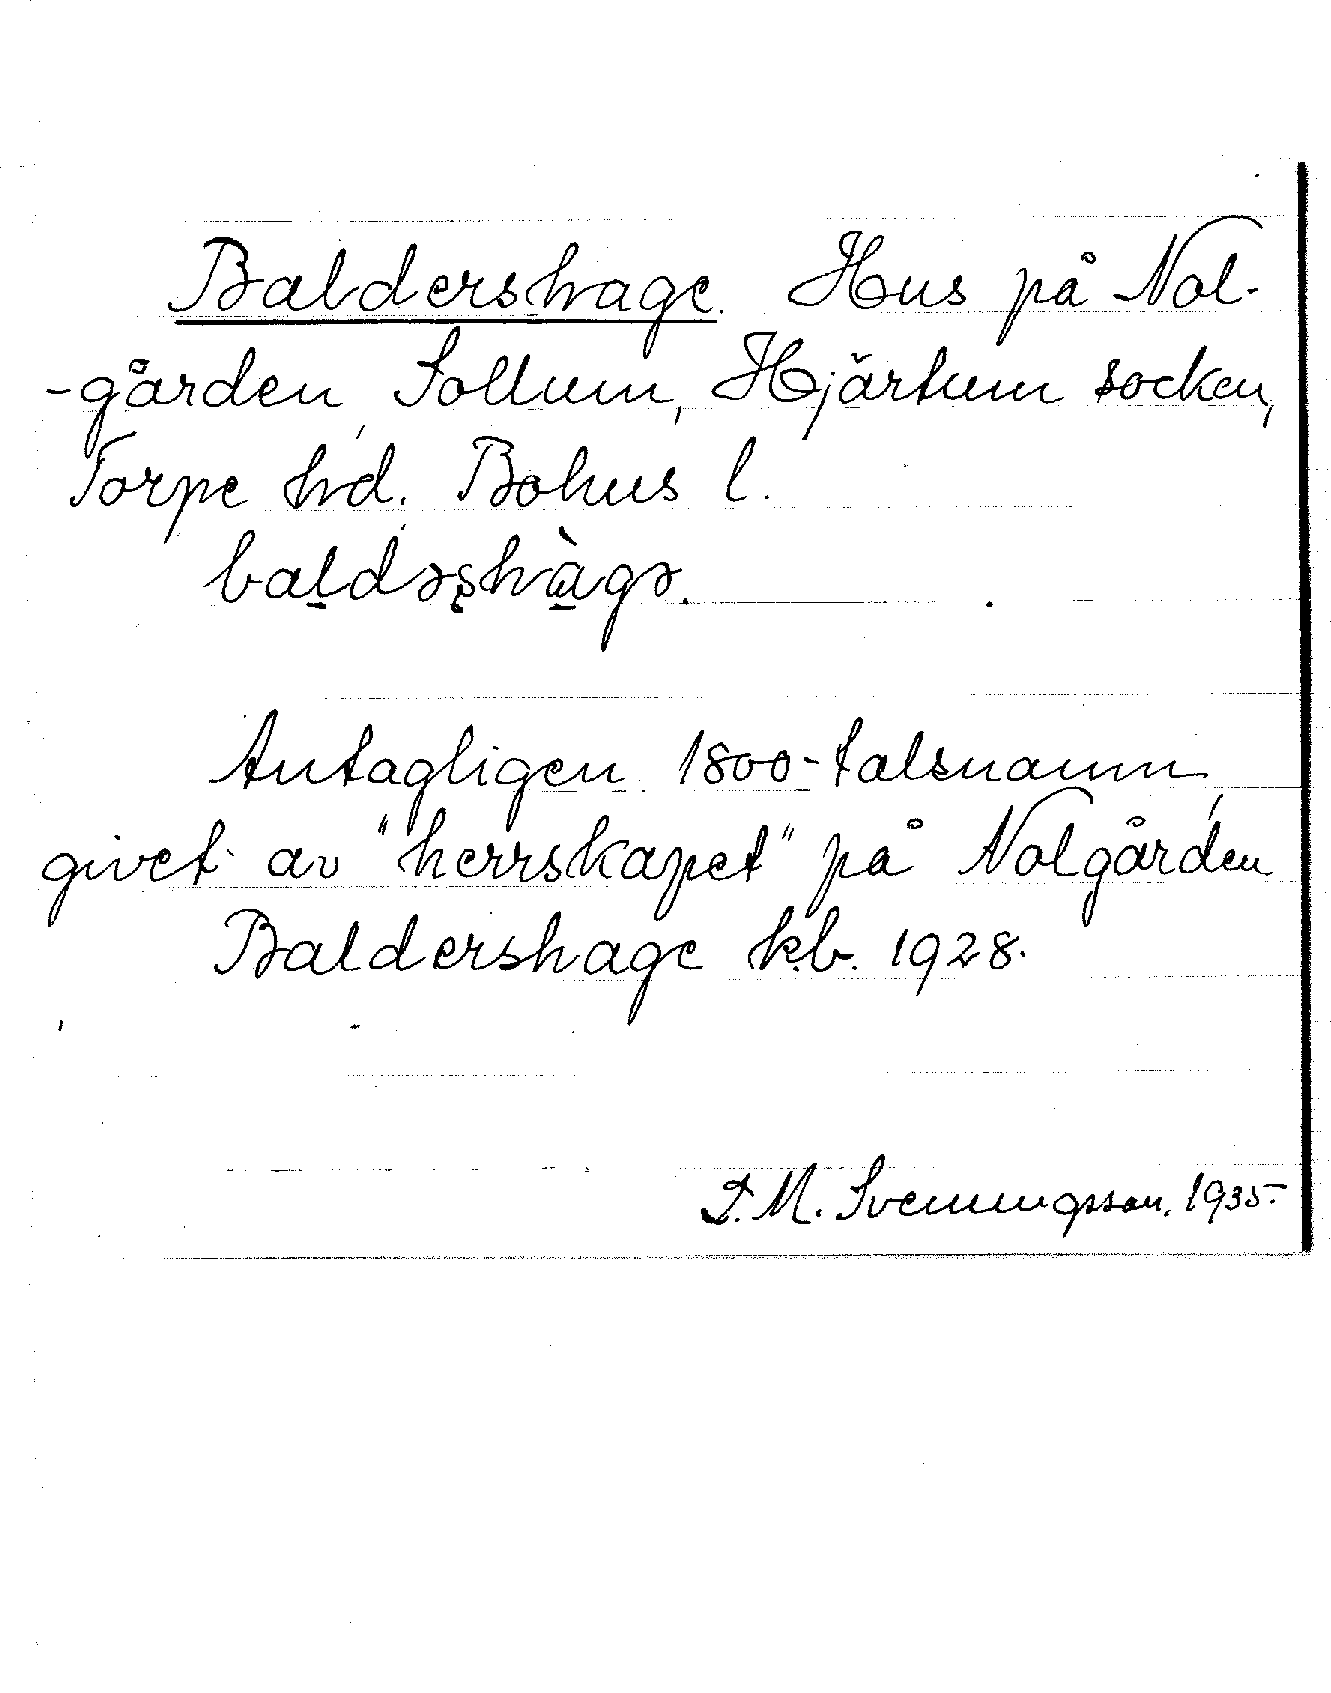 Baldershage. Hus på Nol-
-gården, Sollum, Hjärtum socken,
Torpe hd. Bohus l.
baḻdəʂhà̱gə.
Antagligen 1800-talsnamn,
givet av "herrskapet" på Nolgården
Baldershage kb. 1928.
D. M. Svenningsson. 1935.